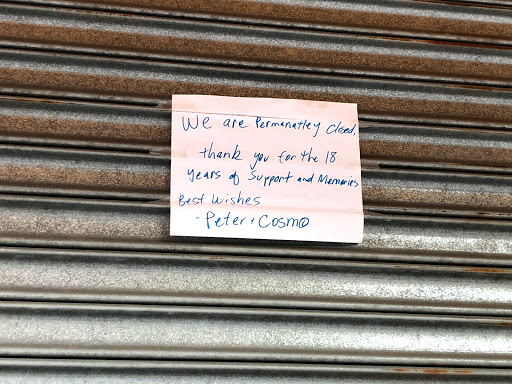 We are Permanatley closed,
thank you for the 18
years of Support and Memories
Best Wishes
- Peter + Cosmo